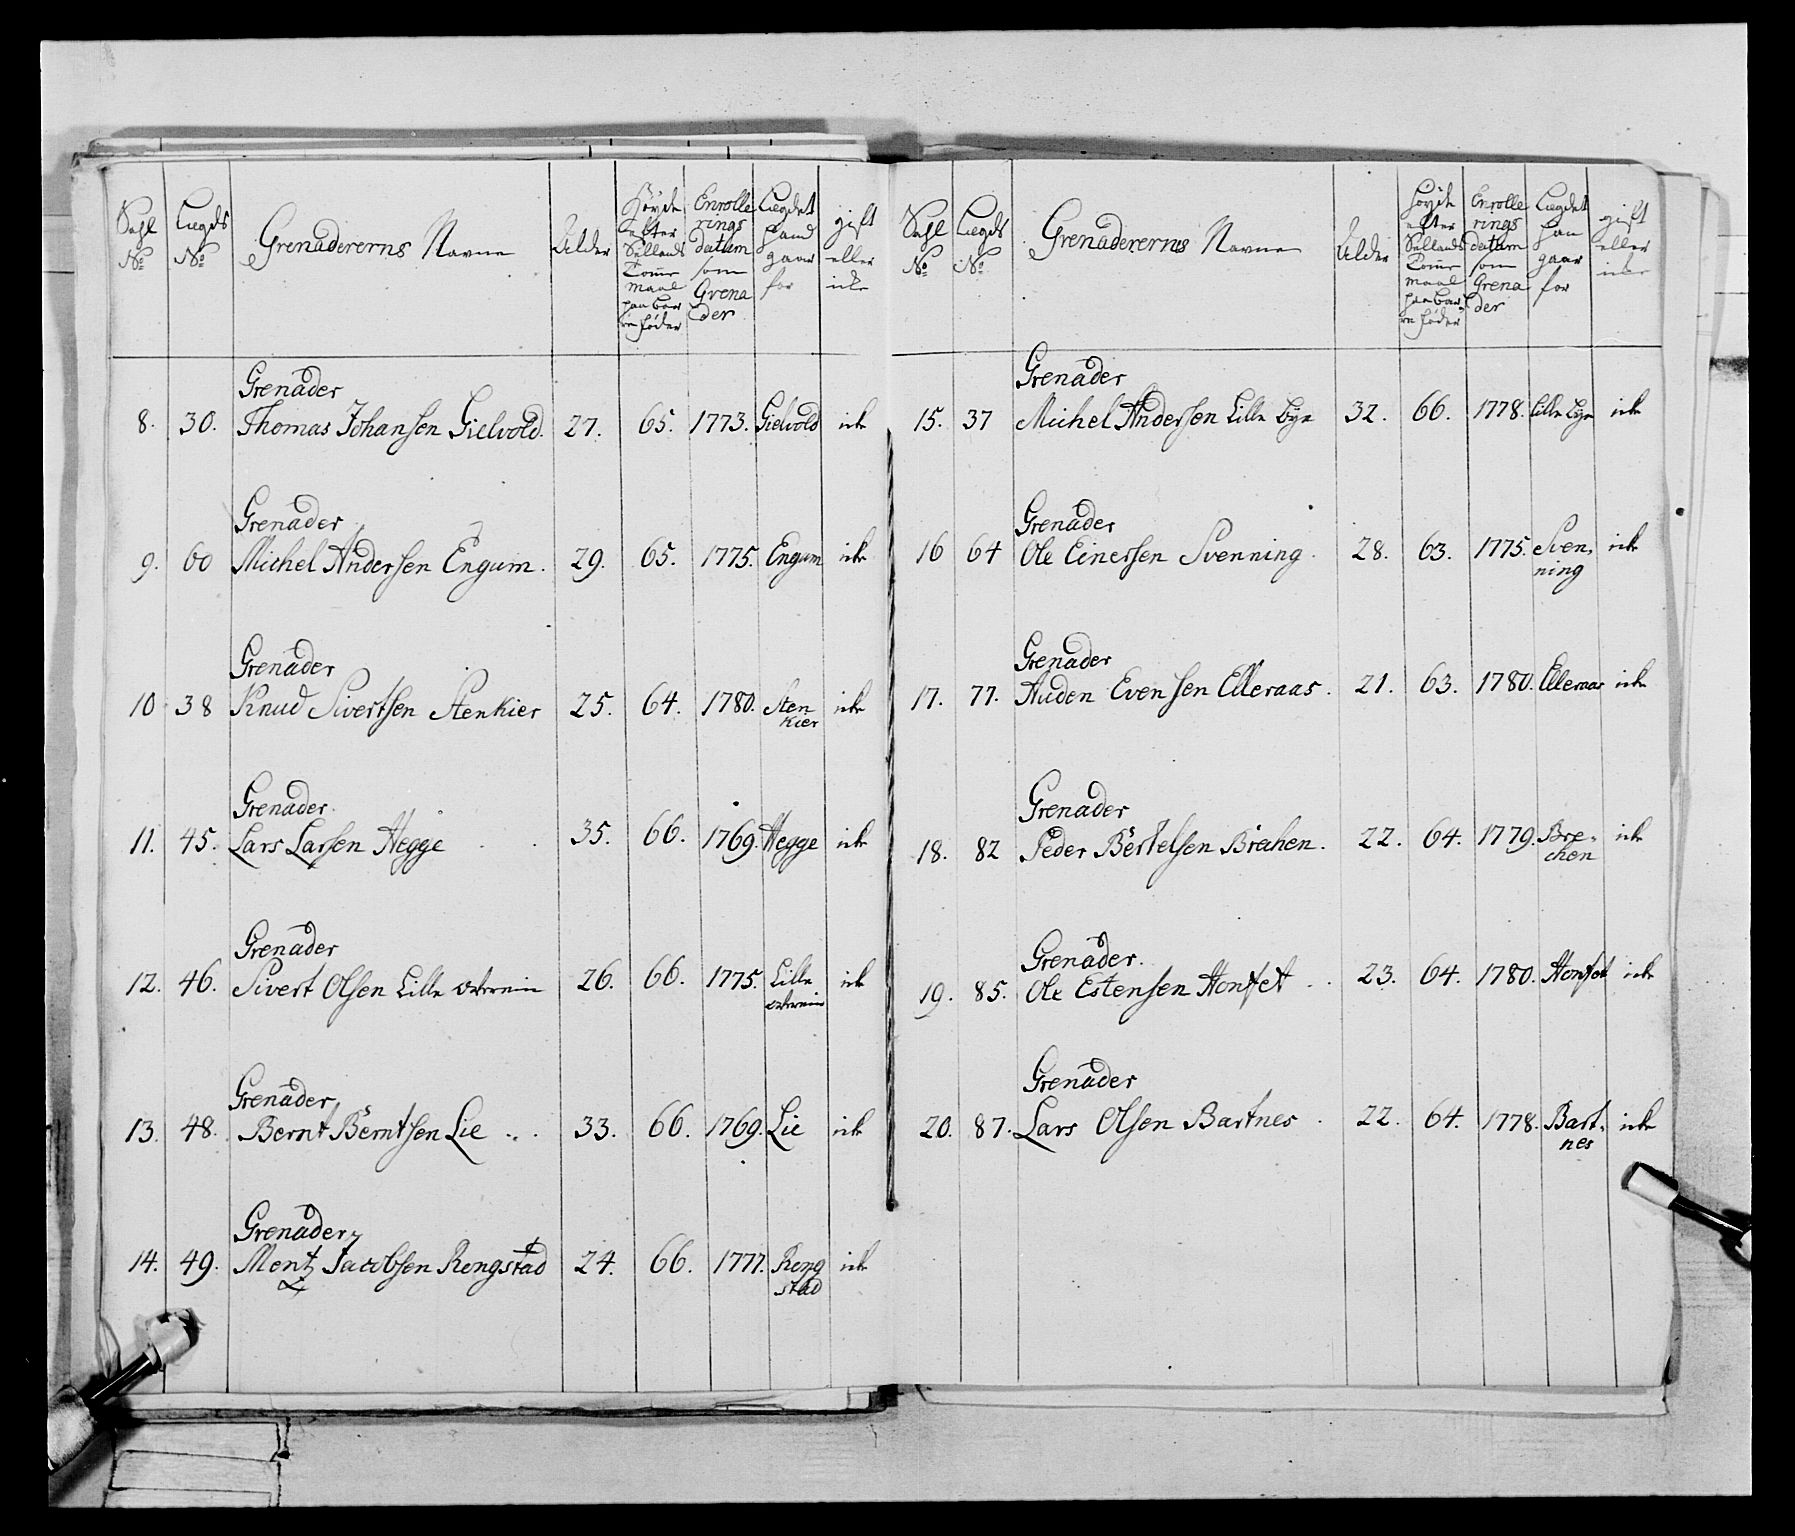 Sahl No | Lægds No | Grenaderernes Navne | Alder | Høyde efter Sellands Tomme maal paa bare føder | Enrollerings datum som Grenader | Lægdet hand gaar for | gift eller icke
Grenader
8. 30. Thomas Johansen Gielvold. 27. 65. 1773. Gielvold icke
Grenader
9. 60 Michel Andersen Engum. 29. 65. 1775. Engum icke
Grenader
10 38 Knud Sivertsen Stenkier 25. 64. 1780. Stenkier icke
Grenader
11. 45. Lars Larsen Hegge 35. 66. 1769. Hegge icke
Grenader
12. 46. Sivert Olsen Lille 26. 66. 1775. Lille icke
Grenader
13. 48. Bernt Berntsen Lie 33. 66. 1769. Lie icke
Grenader
14. 49. Mentz Jacobsen Rengstad 24. 66. 1777. Rengstad icke
Sahl No | Lægds No | Grenaderernes Navne | Alder | Høyde efter Sellands Tomme maal paa bare føder | Enrollerings datum som Grenader | Lægdet han gaar for | gift eller icke
Grenader
15. 37 Michel Andersen Lille Bye 32. 66. 1778. Lille Bye icke
Grenader
16 64 Ole Einersen Svenning. 28. 63. 1775. Svenning icke
Grenader
17. 77. Auden Evensen Elleraas. 21. 63. 1780. Elleraas icke
Grenader
18. 82 Peder Bertelsen Brechen. 22. 64. 1779. Brechen icke
Grenader.
19. 85. Ole Estensen Honset 23. 64. 1780. Honset icke
Grenader
20. 87. Lars Olsen Bartnes 22. 64. 1778. Bartnes icke